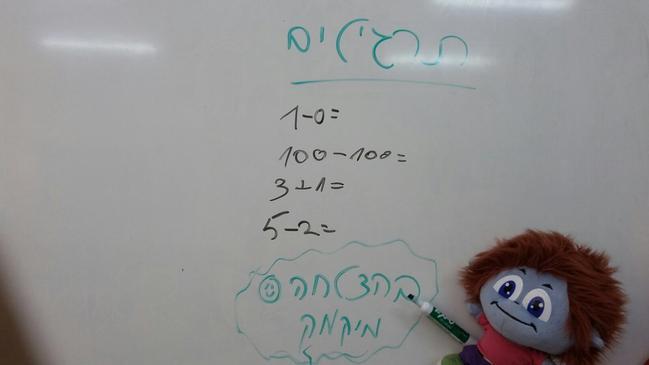 תרגילים
1-0=
100-100=
3+1=
5-2=
בהצלחה☺
מיקמק